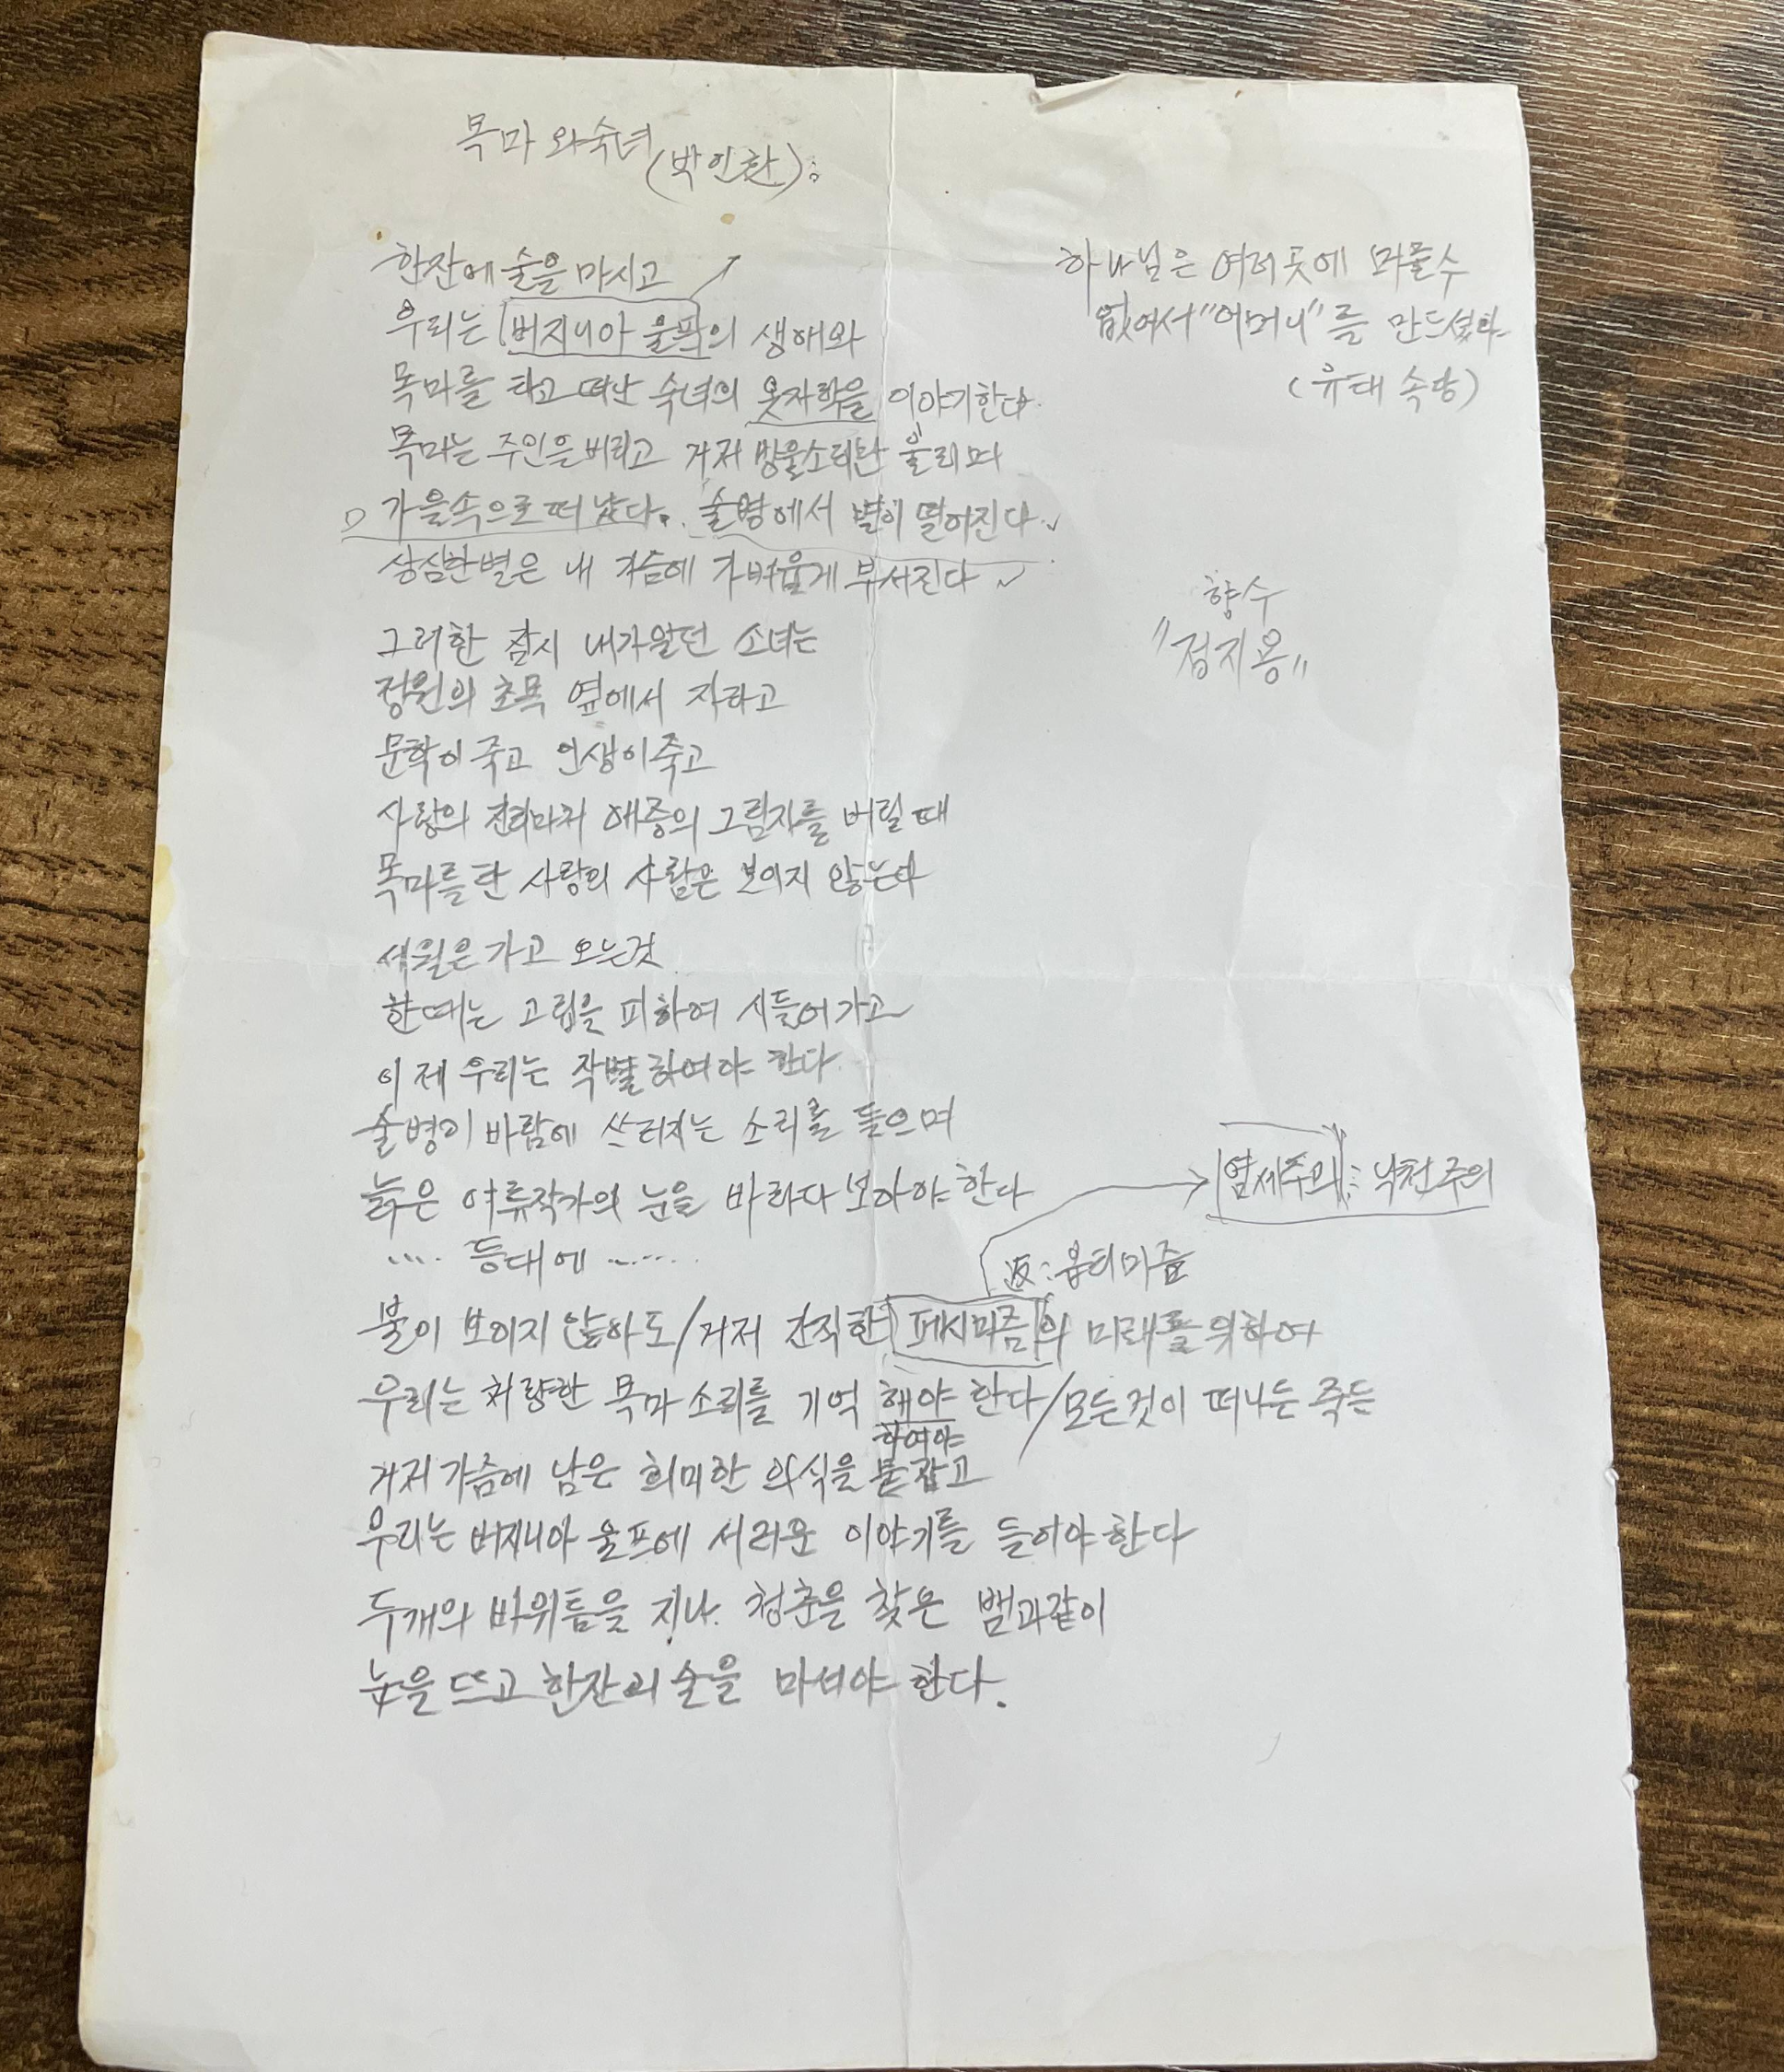 목마 와숙녀 (박인환):
한잔에 술을 마시고
우리는 버지니아 울프의 생애와
목마를 타고 떠난 숙녀의 옷자락을 이야기한다.
목마는 주인을버리고 거저 방울소리만 울리며
가을속으로 떠났다. 술병에서 별이 떨어진다
상심한별은 내 가슴에 가벼웁게 부서진다
그러한 잠시 내가알던 소녀는
정원의 초목 옆에서 자라고
문학이 죽고 인생이죽고
사랑의 진리마저 애증의 그림자를 버릴때
목마를탄 사랑의 사람은 보이지 않는다
세월은가고 오는것
한때는 고립을 피하여 시들어가고
이제 우리는 작별하여야 한다
술병이 바람에 쓰러지는 소리를 들으며
늙은 여류작가의 눈을 바라다보아야한다
.... 등대에 ......
불이 보이지 않아도/거저 간직한 페시미즘의 미래를위하여
우리는 처량한 목마소리를 기억 해야 한다/모든것이 떠나든 죽든
하여야
거저가슴에 남은 희미한 의식을 붙잡고
우리는 버지니아 울프에 서러운 이야기를 들어야한다
두개의 바위틈을 지나. 청춘을 찾은 뱀과같이
눈을 뜨고 한잔의 술을 마셔야 한다.
하나님은 여러곳에 머물수
없어서 "어머니"를 만드셨다
(유태 속담)
향수
"정지용"
염세주의: 낙천주의
返: 옵티미즘